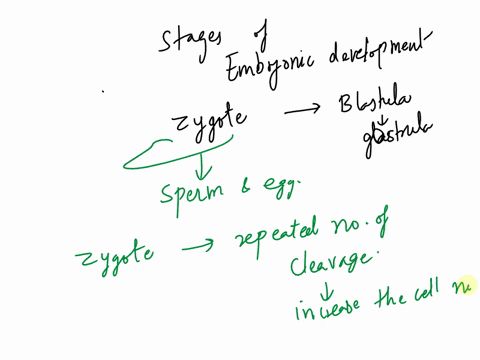 Stages of
Embryonic development
Zygote → Blastula
↓
gastrula
↓
Sperm & egg.
Zygote → repeated no. of
cleavage.
↓
increase the cell